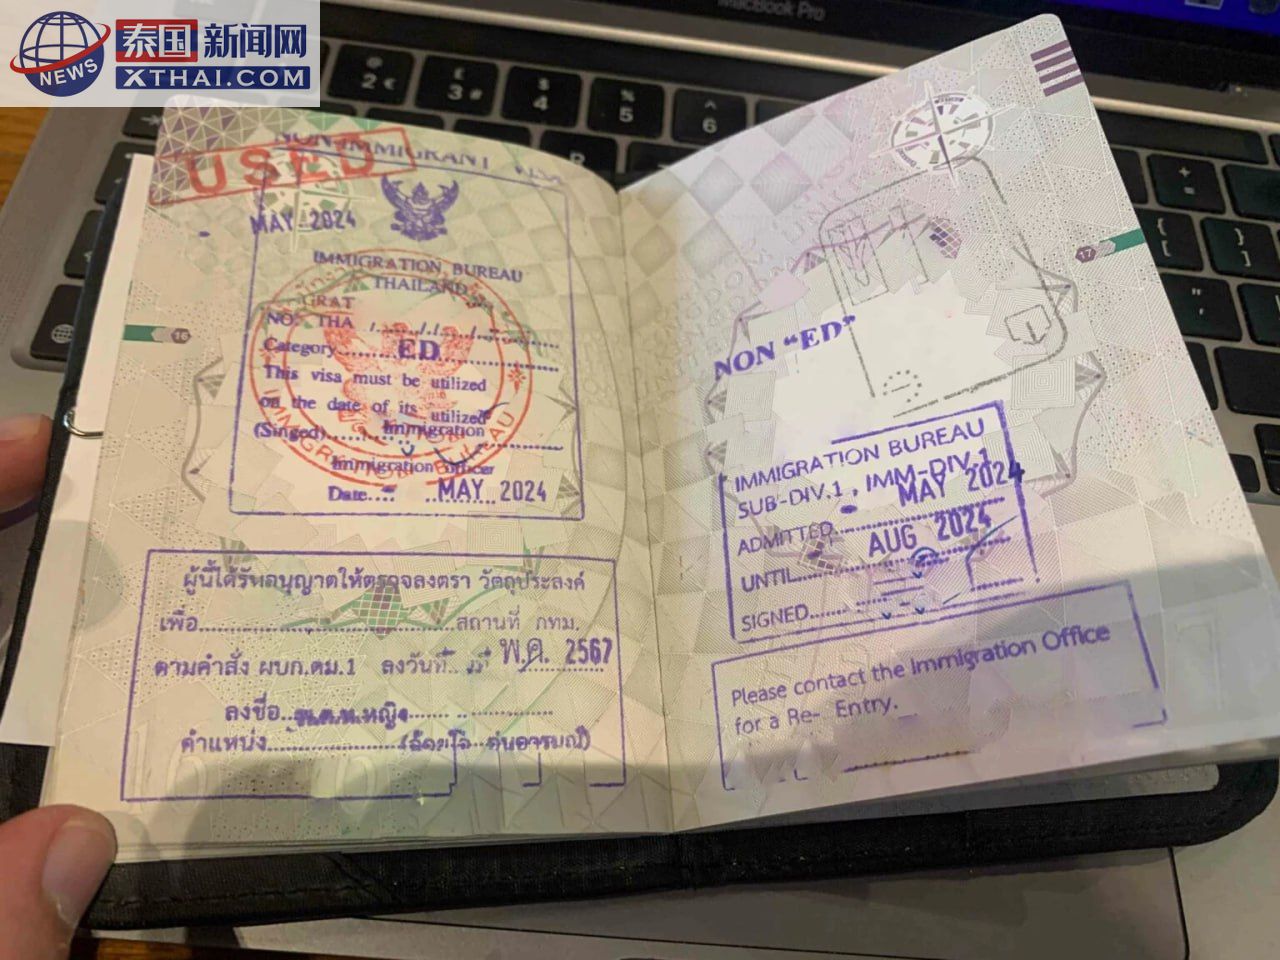 泰国新闻网
NEWS
XTHAI.COM
MacBook Pro
NON-IMMIGRANT
USED
MAY 2024
IMMIGRATION BUREAU
THAILAND
NO. THA
Category ED
This visa must be utilized
on the date of its utilized
(Singed) Immigration
Immigration Officer
Date MAY 2024
IMMIGRATION BUREAU
16
ผู้นี้ได้รับอนุญาตให้ตรวจลงตรา วัตถุประสงค์
เพื่อ สถานที่ กทม.
ตามคำสั่ง ผบก.ตม.1 ลงวันที่ พ.ค. 2567
ลงชื่อ
ตำแหน่ง
17
NON "ED"
IMMIGRATION BUREAU
SUB-DIV.1, IMM-DIV.1
ADMITTED MAY 2024
UNTIL AUG 2024
SIGNED
Please contact the Immigration Office
for a Re- Entry.